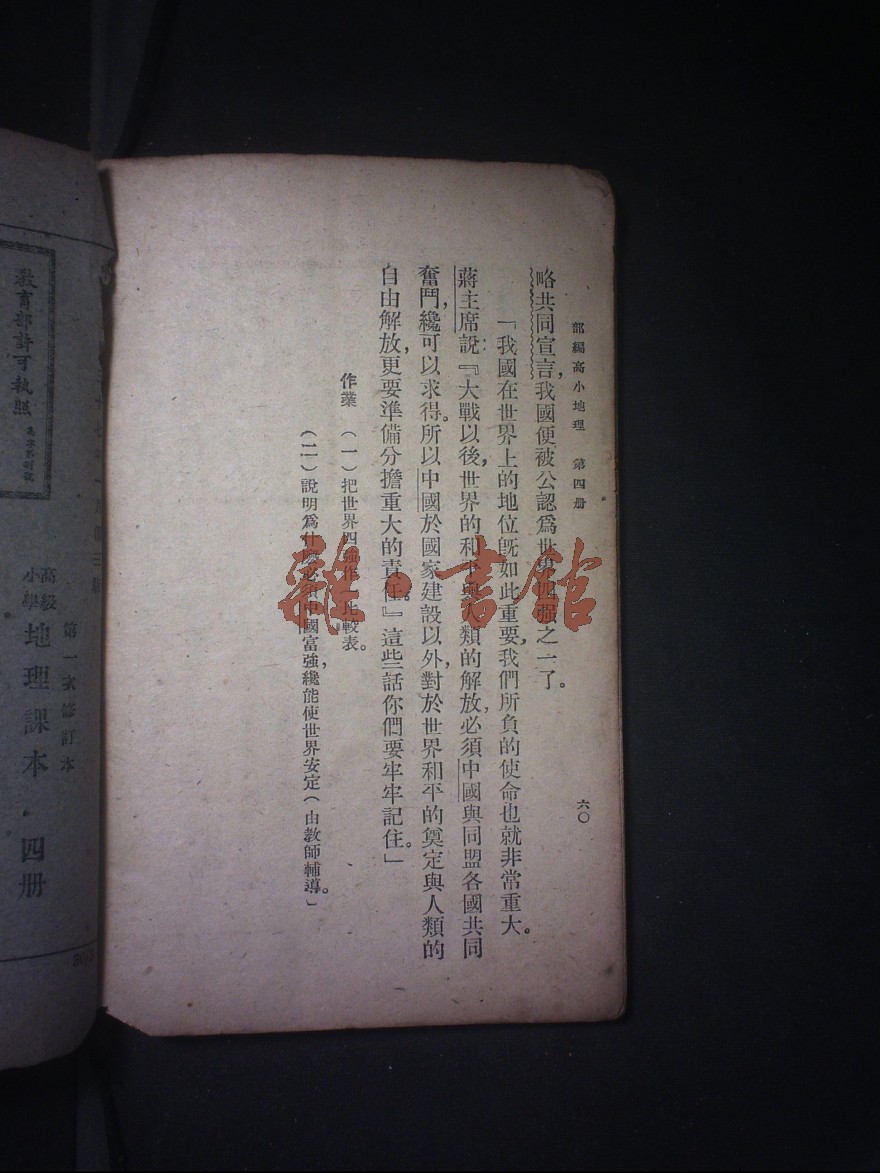 部編高小地理　第四册
六〇
略共同宣言,我國便被公認爲世界四强之一了。
「我國在世界上的地位旣如此重要,我們所負的使命也就非常重大。
蔣主席說:『大戰以後,世界的和平與人類的解放,必須中國與同盟各國共同
奮鬥,纔可以求得。所以中國於國家建設以外,對於世界和平的奠定與人類的
自由解放,更要準備分擔重大的責任。』這些話你們要牢牢記住。」
作業　(一)把世界四強作一比較表。
(二)說明爲什麼必須中國富強,纔能使世界安定(由教師輔導。)
雜·書館
教育部許可執照
第一次修訂本
高級小學　地理課本　四册